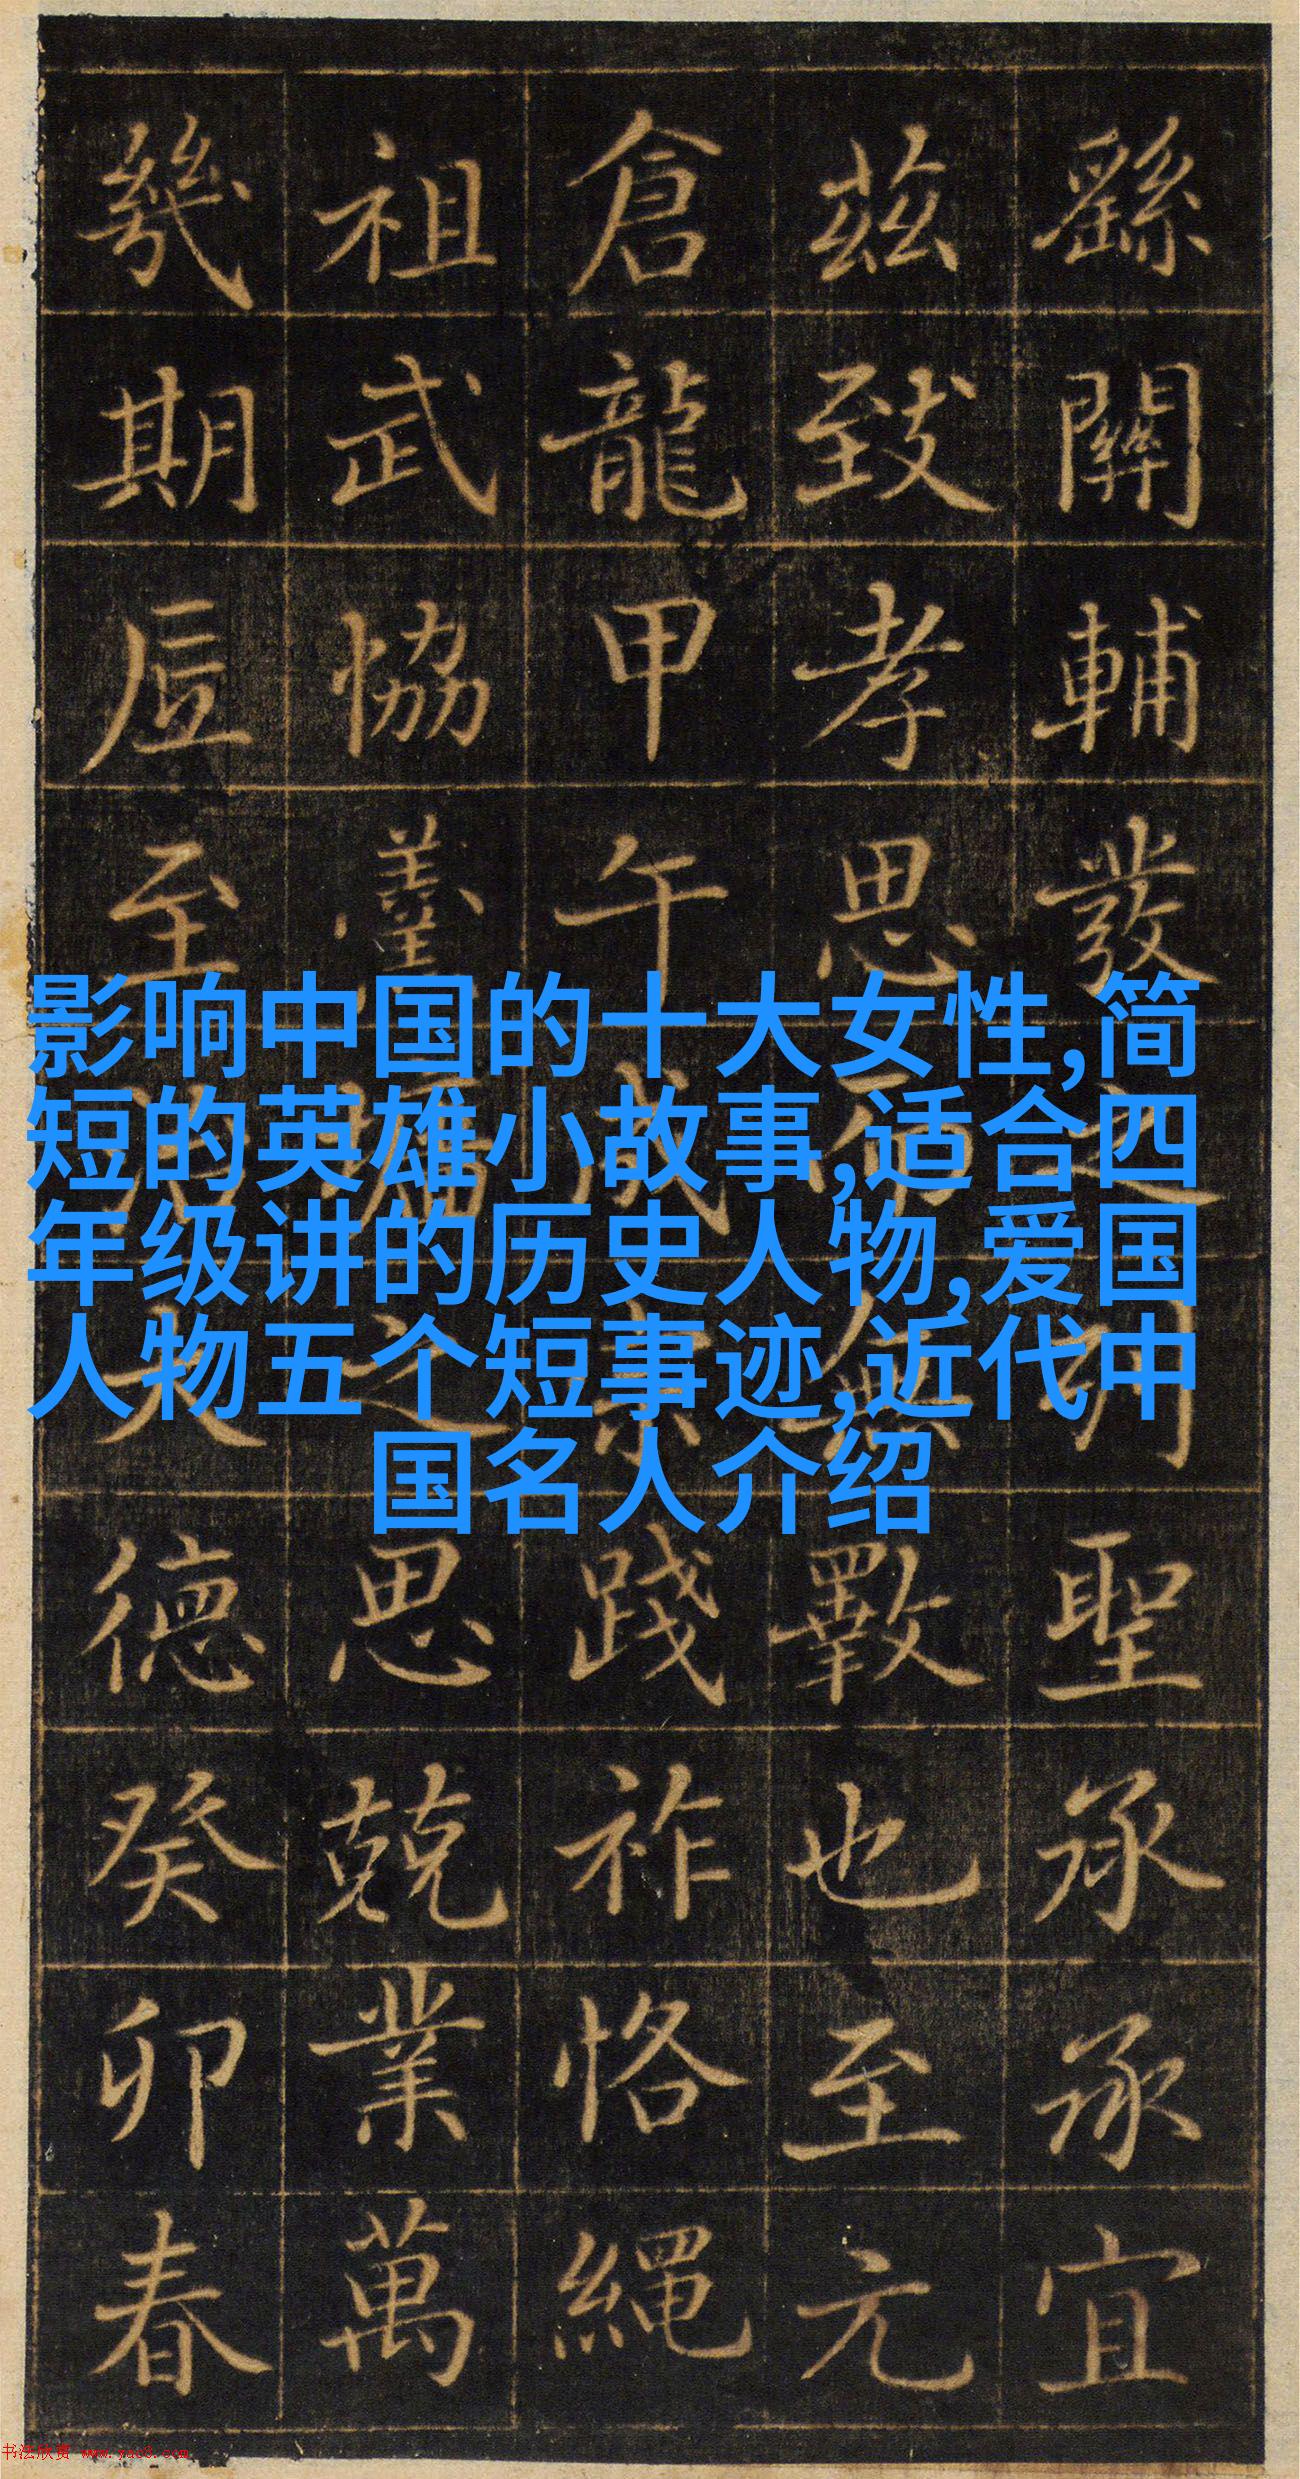 繇關輔發之聖承承宜
茲致孝思無斁也至元
倉龍甲午成宗踐祚恪繩
祖武恊羹墻之思兢業萬
幾期底至治大德癸卯春
影响中国的十大女性,简
短的英雄小故事,适合四
年级讲的历史人物,爱国
人物五个短事迹,近代中
国名人介绍
书法欣赏 www.yac8.com